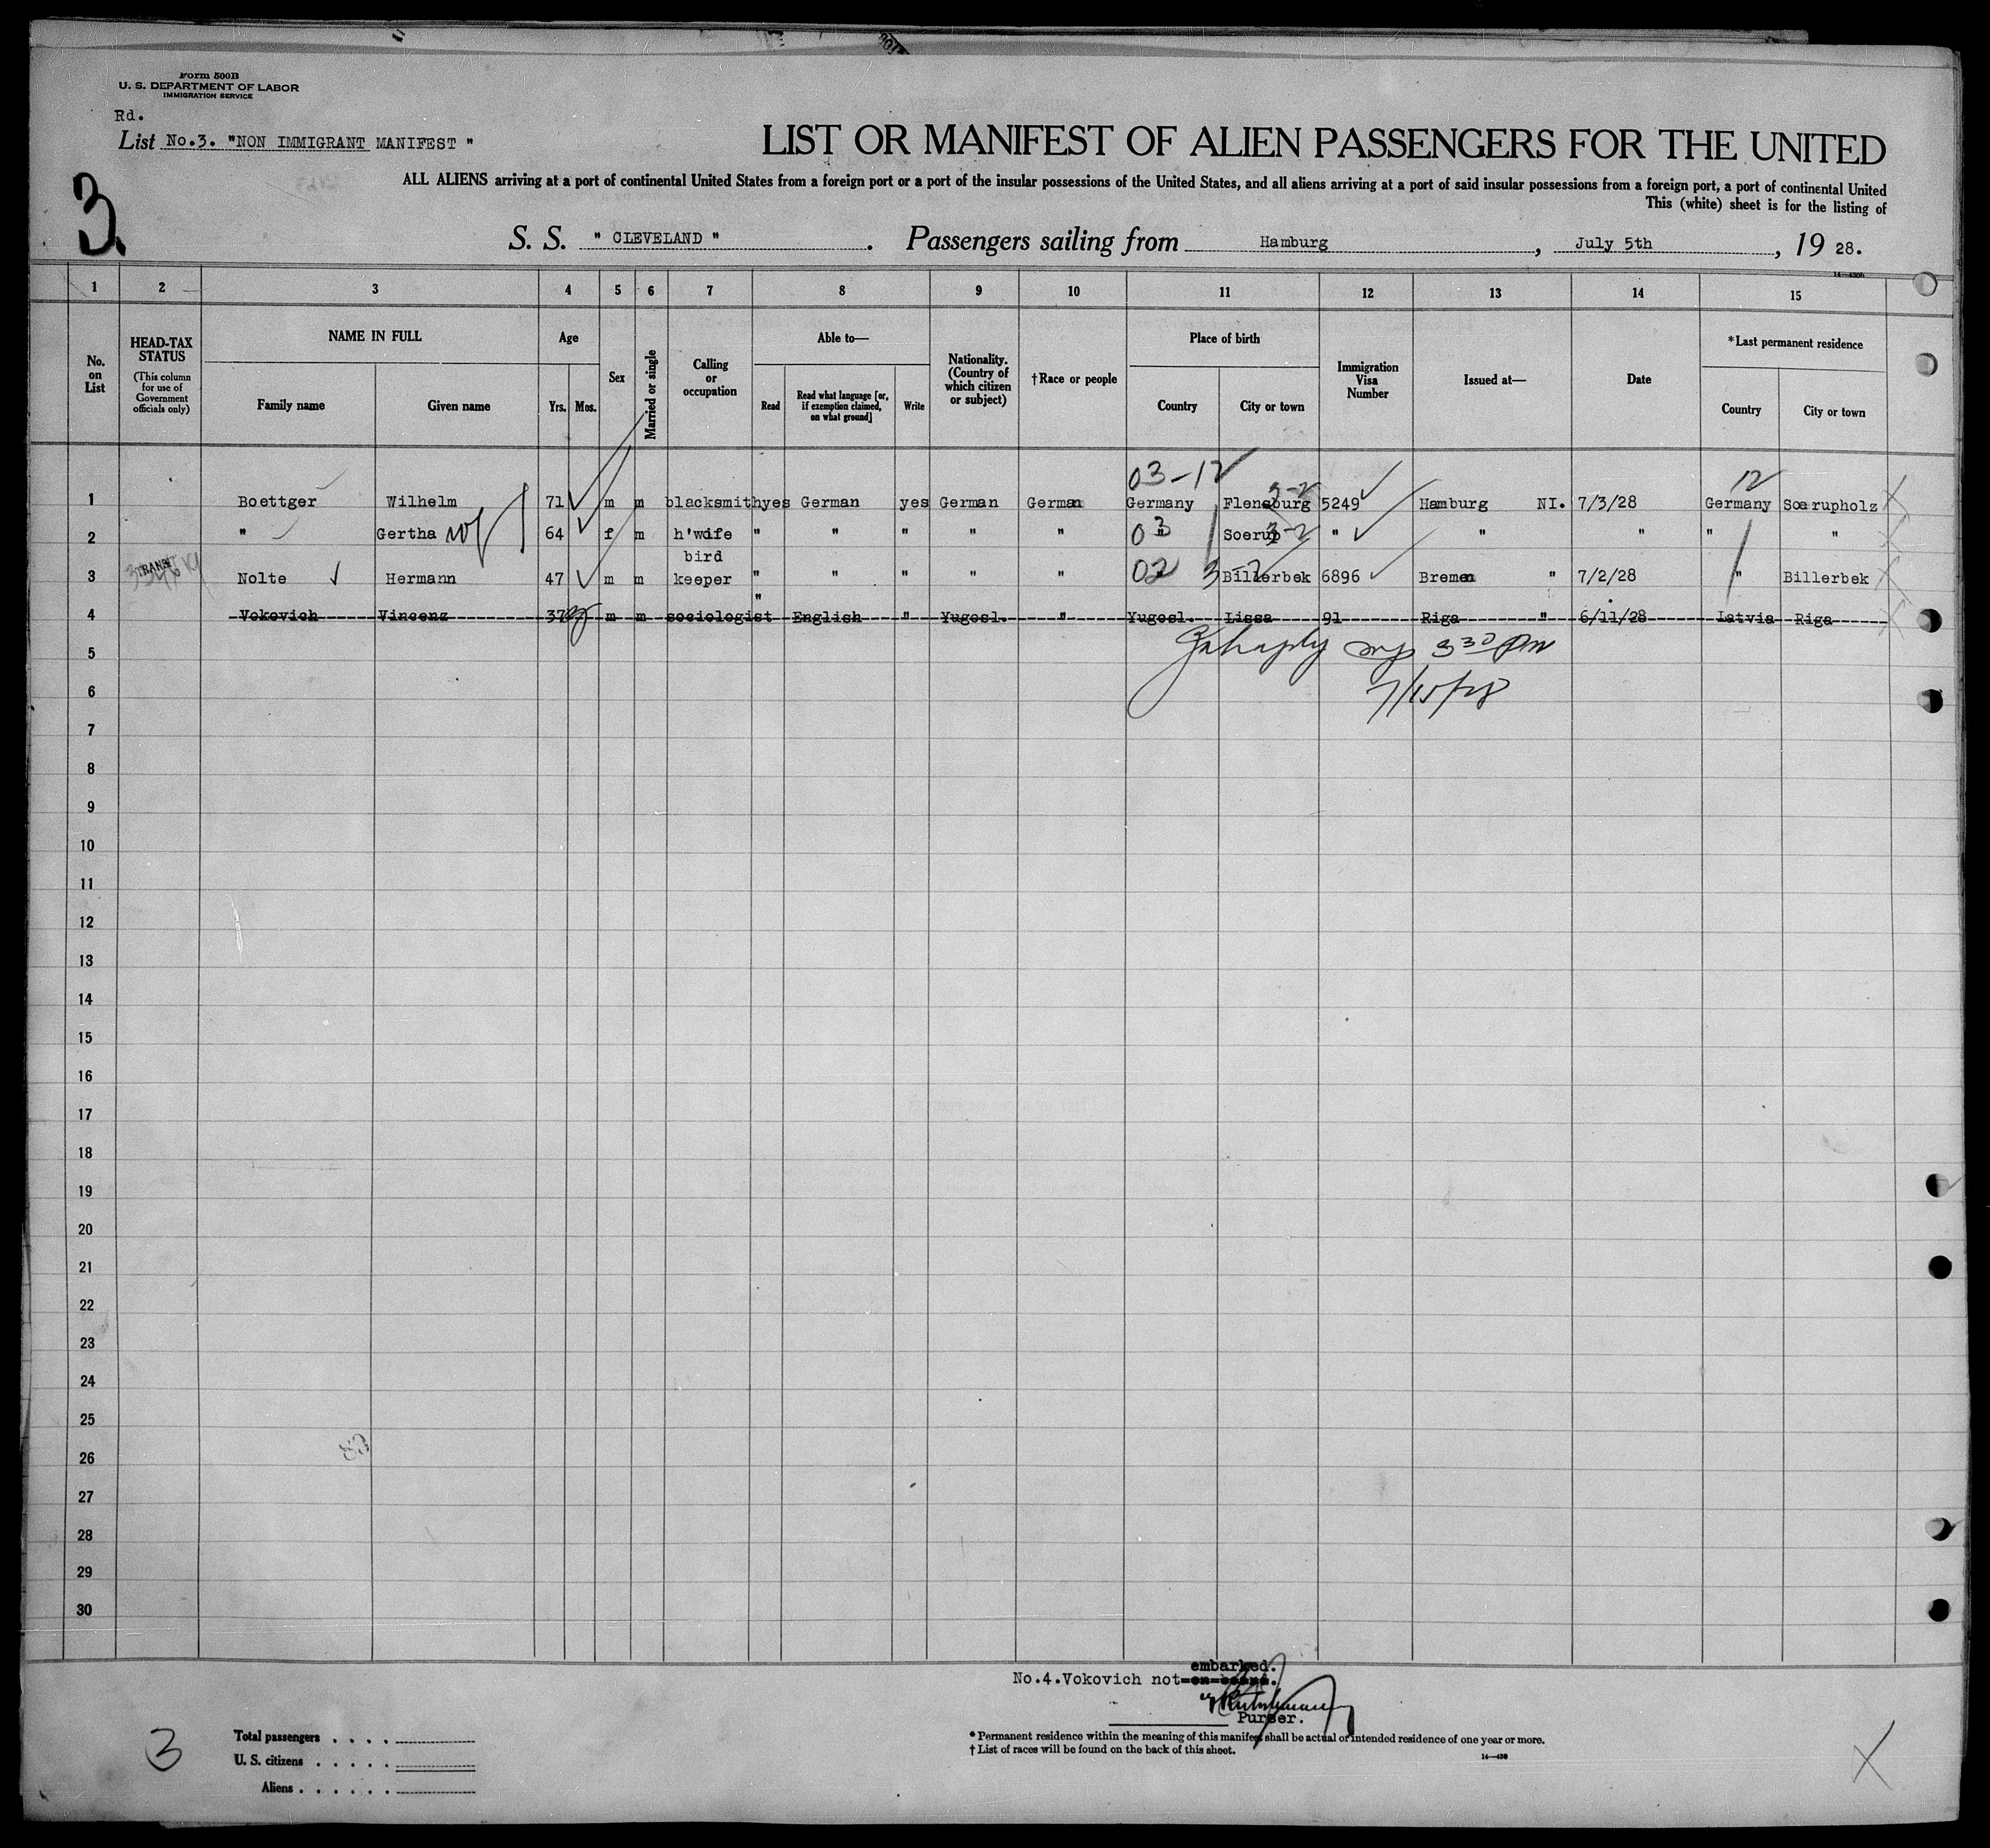 Form 500B
U. S. DEPARTMENT OF LABOR
IMMIGRATION SERVICE
Rd.
List No.3. "NON IMMIGRANT MANIFEST "
3.
LIST OR MANIFEST OF ALIEN PASSENGERS FOR THE UNITED
ALL ALIENS arriving at a port of continental United States from a foreign port or a port of the insular possessions of the United States, and all aliens arriving at a port of said insular possessions from a foreign port, a port of continental United
This (white) sheet is for the listing of
S. S. " CLEVELAND " . Passengers sailing from Hamburg , July 5th , 19 28.
1 2 3 4 5 6 7 8 9 10 11 12 13 14 15
No. on List
HEAD-TAX STATUS (This column for use of Government officials only)
NAME IN FULL
Family name
Given name
Age
Yrs. Mos.
Sex
Married or single
Calling or occupation
Able to—
Read
Read what language [or, if exemption claimed, on what ground]
Write
Nationality. (Country of which citizen or subject)
†Race or people
Place of birth
Country
City or town
Immigration Visa Number
Issued at—
Date
*Last permanent residence
Country
City or town
03-12 12
1 Boettger Wilhelm 71 m m blacksmith yes German yes German German Germany Flensburg 5249 Hamburg NI. 7/3/28 Germany Soerupholz
2 " Gertha wf 64 f m h'wife " " " " " 03 Soerup " " " " "
3 Nolte Hermann 47 m m bird keeper " " " " " 02 Billerbek 6896 Bremen " 7/2/28 " Billerbek
4 Vokovich Vincenz 37 m m sociologist " English " Yugosl. " Yugosl. Lissa 91 Riga " 6/11/28 Latvia Riga
3 30 pm
7/15/28
5
6
7
8
9
10
11
12
13
14
15
16
17
18
19
20
21
22
23
24
25
26
27
28
29
30
embarked.
No.4.Vokovich not on board.
Purser.
3
Total passengers . . . .
U. S. citizens . . . . .
Aliens . . . . . .
* Permanent residence within the meaning of this manifest shall be actual or intended residence of one year or more.
† List of races will be found on the back of this sheet.
14—430